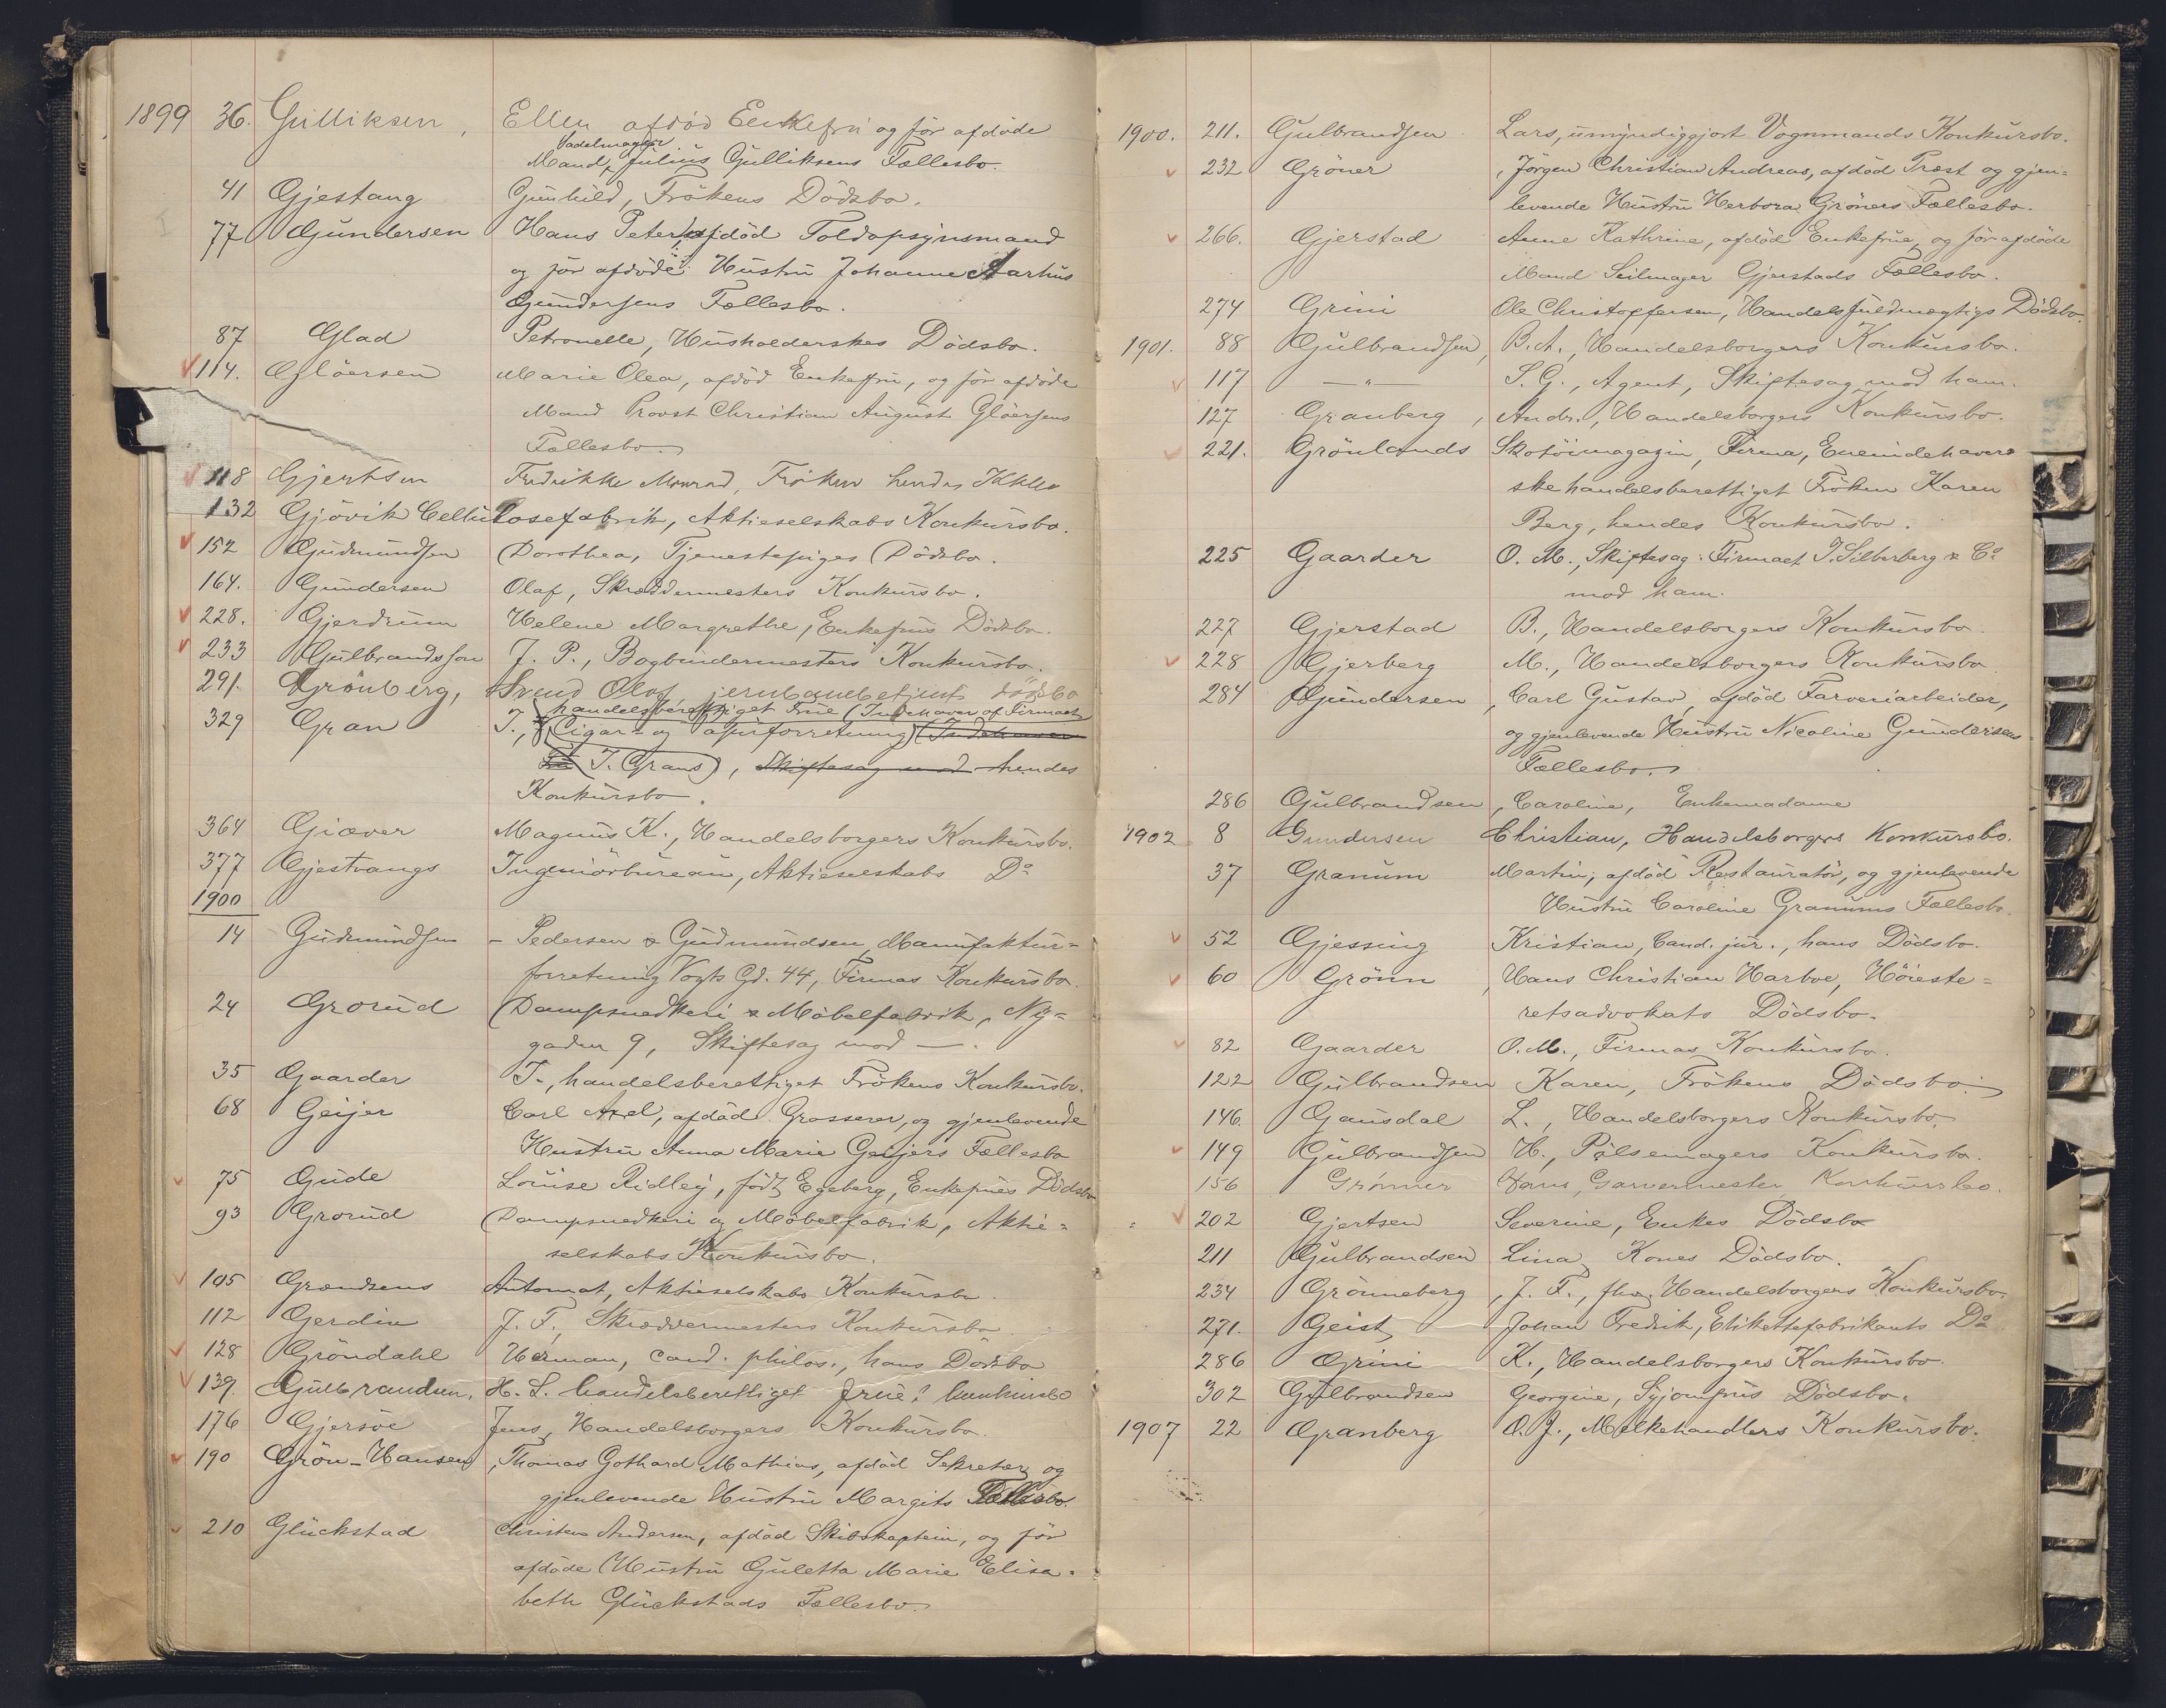 1899 36. Gulliksen, Ellen afdöd Enkefru og för afdöde
Sadelmager
Mand, Julius Gulliksens Fællesbo.
41 Gjestang Gunhild, Frökens Dödsbo.
77 Gundersen Hans Peter, afdöd Toldopsynsmand
og för afdöde Hustru Johanne Aarhus
Gundersens Fællesbo.
87 Glad Petronelle, Husholderskes Dödsbo.
114. Glöersen Marie Olea, afdöd Enkefru, og för afdöde
Mand Provst Christian August Glöersens
Fællesbo.
118 Gjertsen Fredrikke Monrad, Fröken hendes
132 Gjövik Cellulosefabrik, Aktieselskabs Konkursbo.
152 Gudmundsen Dorothea, Tjenestepiges Dödsbo.
164. Gundersen Olaf, Skræddermesters Konkursbo.
228. Gjerdrum Helene Margrethe, Enkefrus Dödsbo.
233 Gulbrandsson J. P., Bogbindermesters Konkursbo.
291. Grönberg, Svend Olof, jernbanebetjent dödsbo
handelsberettiget Frue (Indehaver af Firmaet
329 Gran T., Cigar- og Papirforretning) (Indehaver
T. Grans), Skiftesag mod hendes
Konkursbo.
364 Giæver Magnus K., Handelsborgers Konkursbo.
377 Gjestvangs Ingeniörbureau, Aktieselskabs Do
1900
14 Gudmundsen - Pedersen & Gudmundsen, Manufaktur-
forretning Vogts Gd. 44, Firmas Konkursbo.
24 Grorud Dampsnedkeri & Möbelfabrik, Ny-
gaden 9, Skiftesag mod —.
35 Gaarder T., handelsberettiget Frökens Konkursbo.
68 Geijer Carl Axel, afdöd Grosserer, og gjenlevende
Hustru Anna Marie Geijers Fællesbo
75 Gude Louise Ridley, född Egeberg, Enkefrues Dödsbo
93 Grorud Dampsnedkeri og Möbelfabrik, Aktie-
selskabs Konkursbo.
105 Grændsens Automat, Aktieselskabs Konkursbo.
112 Gerdin J. F., Skræddermesters Konkursbo.
128 Gröndahl Herman, cand. philos., hans Dödsbo
139. Gulbrandsen, H. L. handelsberettiget Frue's konkursbo
176 Gjersöe Jens, Handelsborgers Konkursbo.
190 Grön-Hansen, Thomas Gothard Mathias, afdöd Sekretær og
gjenlevende Hustru Margits Fællesbo.
210 Glückstad Christen Andersen, afdöd Skibskaptein, og för
afdöde Hustru Guletta Marie Elisa-
beth Glückstads Fællesbo.
1900. 211. Gulbrandsen Lars, umyndiggjort Vognmands Konkursbo.
232 Gröner, Jörgen Christian Andreas, afdöd Præst og gjen-
levende Hustru Herbora Gröners Fællesbo.
266. Gjerstad Anne Kathrine, afdöd Enkefrue, og för afdöde
Mand Seilmager Gjerstads Fællesbo.
274 Grini Ole Christoffersen, Handelsfuldmægtigs Dödsbo.
1901. 88 Gulbrandsen, B. A., Handelsborgers Konkursbo.
117 —"— S. G., Agent, Skiftesag mod ham.
127 Granberg, Andr., Handelsborgers Konkursbo.
221. Grönlands Skotöimagazin, Firma, Eneindehaver-
ske handelsberettiget Fröken Karen
Berg, hendes Konkursbo.
225 Gaarder O. M., Skiftesag: Firmaet T. Silberberg & Co
mod ham.
227 Gjerstad B., Handelsborgers Konkursbo.
228 Gjerberg M., Handelsborgers Konkursbo
284 Gundersen, Carl Gustav, afdöd Farveriarbeider,
og gjenlevende Hustru Nicoline Gundersens
Fællesbo.
286 Gulbrandsen, Caroline, Enkemadame
1902 8 Gundersen Christian, Handelsborgers Konkursbo.
37 Granum Martin, afdöd Restauratör, og gjenlevende
Hustru Caroline Granums Fællesbo.
52 Gjessing Kristian, Cand. jur., hans Dödsbo.
60 Grönn, Hans Christian Harboe, Höieste-
retsadvokats Dödsbo.
82 Gaarder O. M., Firmas Konkursbo.
122 Gulbrandsen Karen, Frökens Dödsbo.
146. Gausdal L., Handelsborgers Konkursbo.
149 Gulbrandsen H., Pölsemagers Konkursbo.
156 Grönner Hans, Garvermester Konkursbo.
202 Gjertsen Severine, Enkes Dödsbo
211 Gulbrandsen Lina, Kones Dödsbo.
234 Grönneberg, J. F., fhv. Handelsborgers Konkursbo.
271. Geist Johan Fredrik, Etikettefabrikants Do
286 Grini K., Handelsborgers Konkursbo.
302 Gulbrandsen Georgine, Syjomfrus Dödsbo.
1907 22 Granberg O. J., Melkehandlers Konkursbo.